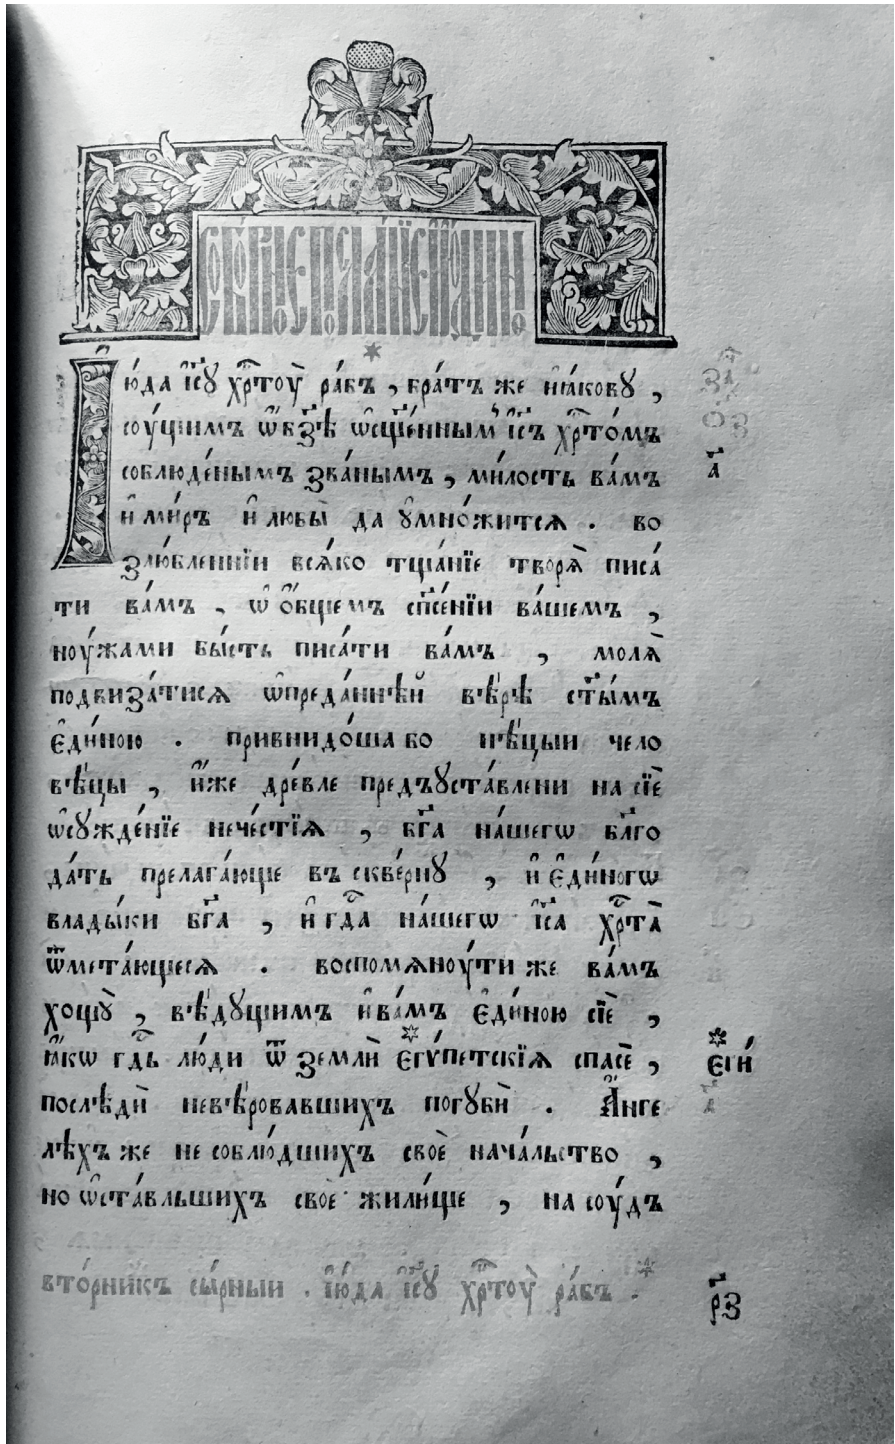 СОБОРНОЕ ПОСЛАНІЕ ІЮДИНО
Ію́да і҆с҃у хр҇тоу̀ ра́бъ , бра́тъ же и҆ꙗ́кову ,
соу́щимъ ѡ҆ бз҃ѣ ѡ҆сщ҃е́ннымъ і҆с҃ъ хр҇то́мъ
соблюде́нымъ зва́нымъ , ми́лость ва́мъ
и҆ ми́ръ и҆ любы̀ да ᲂу҆мно́житсѧ . во
злю́бленнїи всѧ́ко тща́нїе творѧ̀ писа́
ти ва́мъ , ѡ҆ ѻ҆́бщемъ сп҃се́нїи ва́шемъ ,
ноу́жами бы́сть писа́ти ва́мъ , молѧ̀
подвиза́тисѧ ѡ҆ преда́ннѣй вѣ́рѣ ст҃ы́мъ
є҆ди́ною . привнидо́ша бо нѣ́цыи чело
вѣ́цы , и҆́же дре́вле предъꙋста́влени на сїѐ
ѡ҆сꙋжде́нїе нече́стїѧ , бг҃а на́шегѡ бл҃го
да́ть прелага́юще въ скве́рнꙋ , и҆ є҆ди́ногѡ
влады́ки бг҃а , и҆ гд҇а на́шегѡ і҆с҃а хр҇та̀
ѿмета́ющесѧ . воспомѧноу́ти же ва́мъ
хощꙋ̀ , вѣ́дꙋщимъ и҆ ва́мъ є҆ди́ною сїѐ ,
ꙗ҆́кѡ гд҇ь лю́ди ѿ землѝ є҆гѵ́петскїѧ спасѐ , є҆ги́
послѣдѝ невѣ́ровавшихъ погꙋбѝ . А҆́нге
лѣхъ же не соблю́дшихъ своѐ нача́льство ,
но ѡ҆ста́вльшихъ своѐ жили́ще , на соу́дъ
вто́рникъ сы́рныи . і҆ю́да і҆с҃ꙋ хр҇тоу̀ ра́бъ .
р҃з